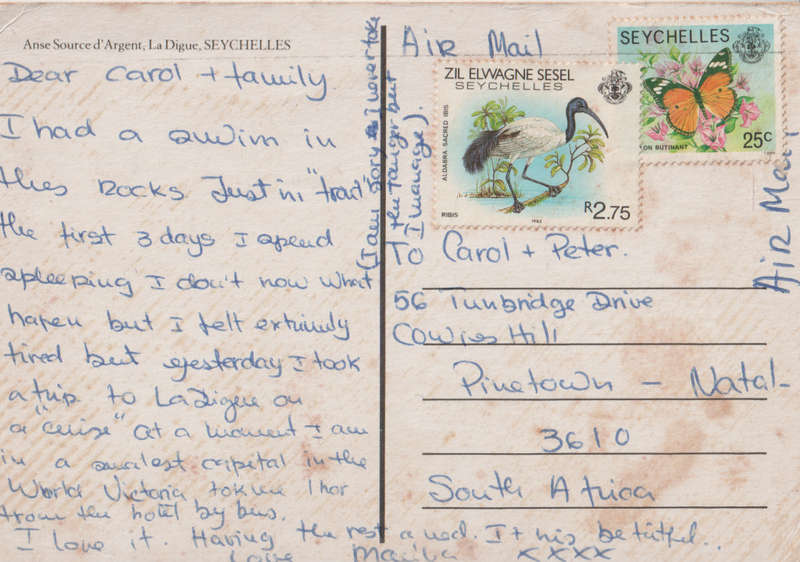 Anse Source d'Argent, La Digue, SEYCHELLES
Dear Carol + family
I had a swim in
thes Rocks Just in "front"
the first 3 days I spend
spleeping I don't now what
hapen but I felt extrimly
tired but yesterday I took
a trip to LaDigue on
a "cruise" At a moment I am
in a smalest capital in the
World Victoria tok me 1 hor
from the hotel by bus.
I love it. Having the rest a need. It his betitful..
Love Marika xxxx
(I am sory I never took
the tanger but
I manage).
AIR Mail
ZIL ELWAGNE SESEL
SEYCHELLES
ALDABRA SACRED IBIS
RIBIS
1983
R2.75
SEYCHELLES
ON BUTINANT
25c
AiR Mail
To Carol + Peter.
56 Tunbridge Drive
Cowies Hill
Pinetown - Natal-
3610
South Africa